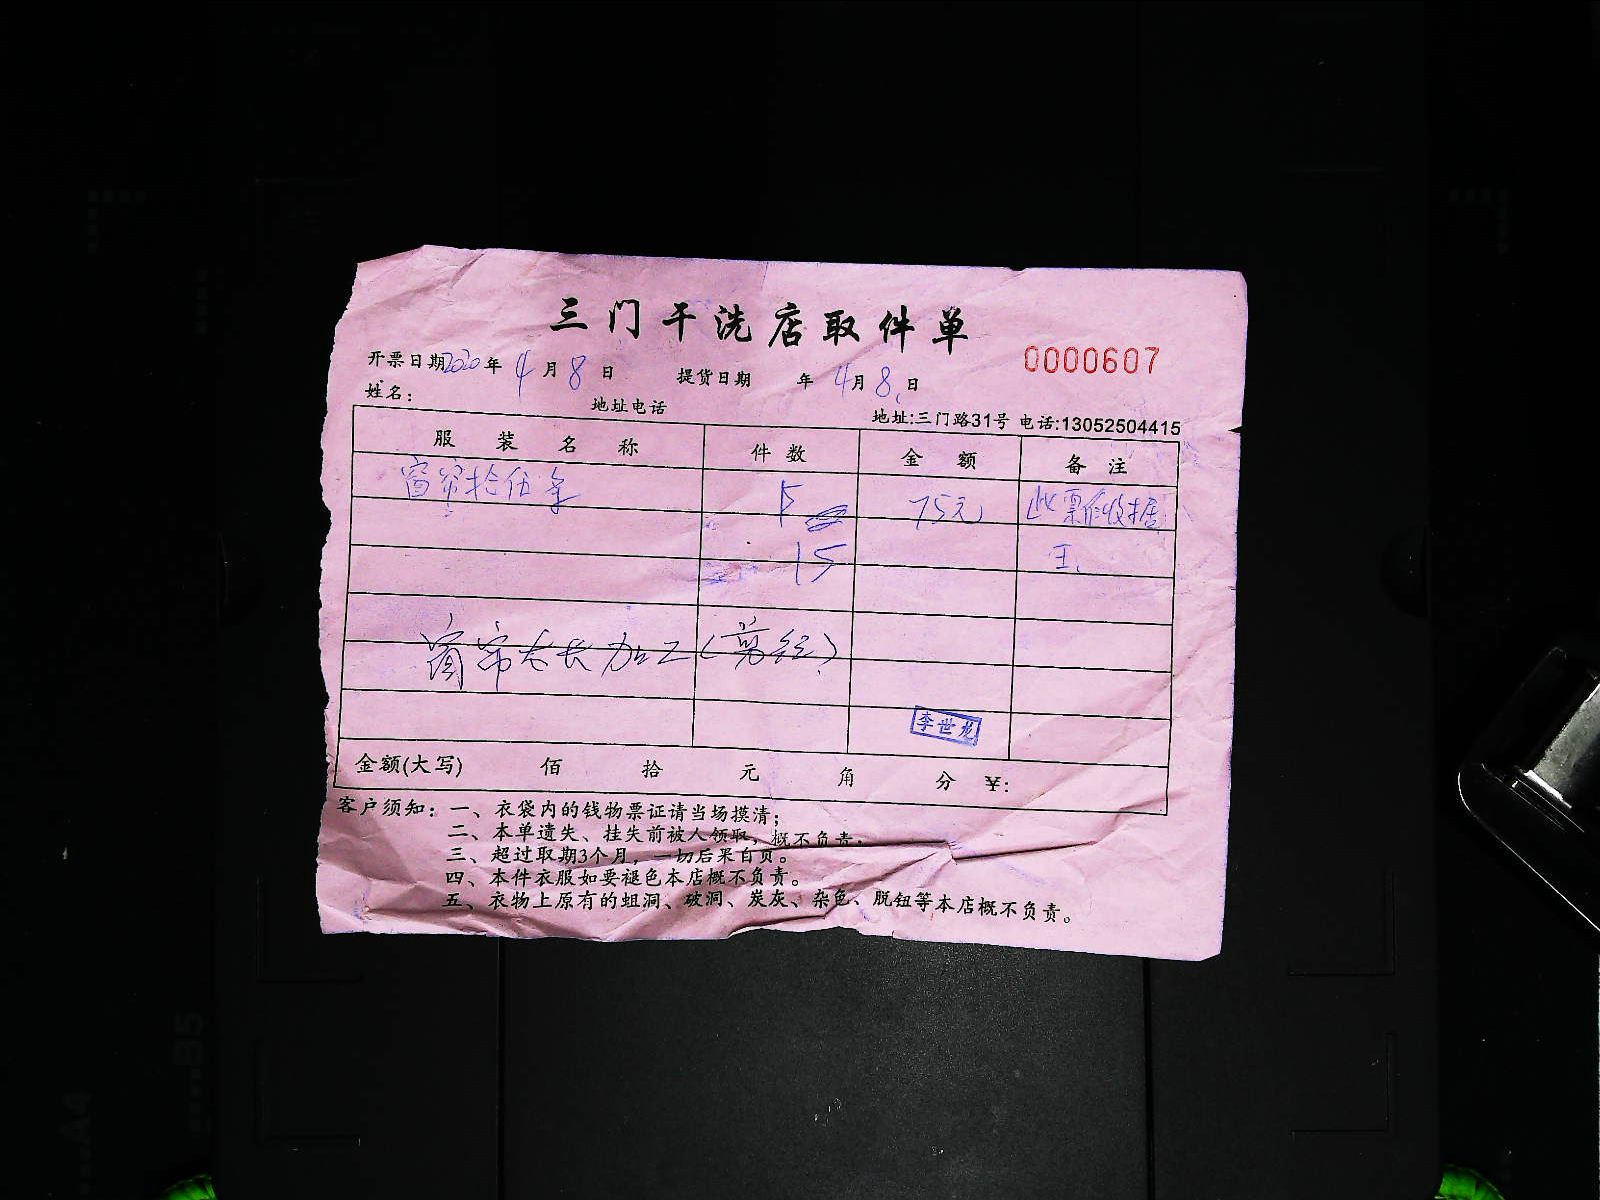 三门干洗店取件单
0000607
开票日期2020年4月8日 提货日期 年4月8日
姓名： 地址电话
地址:三门路31号 电话:13052504415
服装名称 件数 金额 备注
窗帘拾伍 75元 此票作收据
15 王
窗帘太长加工(剪短)
李世龙
金额(大写) 佰 拾 元 角 分 ¥:
客户须知：一、衣袋内的钱物票证请当场摸清；
二、本单遗失、挂失前被人领取，概不负责。
三、超过取期3个月，一切后果自负。
四、本件衣服如要褪色本店概不负责。
五、衣物上原有的蛆洞、破洞、炭灰、杂色、脱钮等本店概不负责。
B5
A4